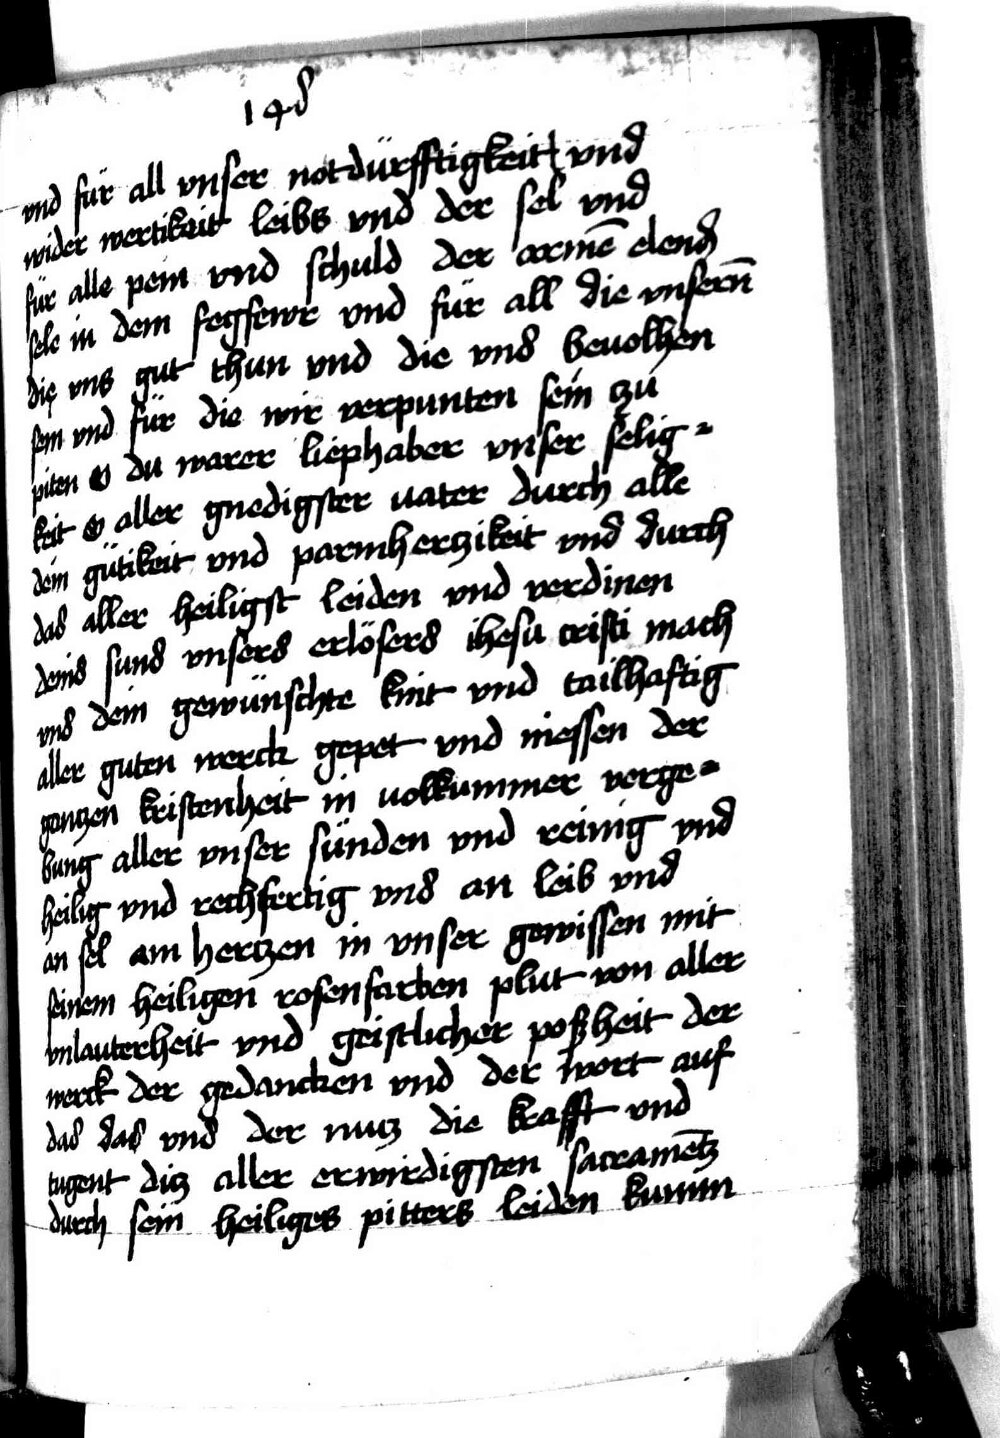 148
vnd für all vnser notdürfftigkeit vnd
wider wertikait leibs vnd der sel vnd
für alle pein vnd schuld der armē elend
sele in dem fegfewr vnd für all die vnsern̄
die vns gut thun vnd die vns beuolhen
sein vnd für die wir verpunten sein zu
piten O du warer liephaber vnser selig=
keit O aller gnedigster uater durch alle
dein gütikeit vnd parmhertzikeit vnd durch
das aller heiligst leiden vnd verdinen
deins suns vnsers erlösers ihesu cristi mach
vns dein gewünschte kint vnd tailhaftig
aller guten werck gepet vnd messen der
gantzen kristenheit in uolkummer verge=
bung aller vnser sünden vnd reinig vnd
heilig vnd rechfertig vns an leib vnd
an sel am hertzen in vnser gewissen mit
seinem heiligen rosenfarben plut von aller
vnlauterheit vnd geistlicher poßheit der
werck der gedancken vnd der wort auf
das das vns der nutz die krafft vnd
tugent ditz aller erwirdigsten sacramētz
durch sein heiliges pitters leiden kumm